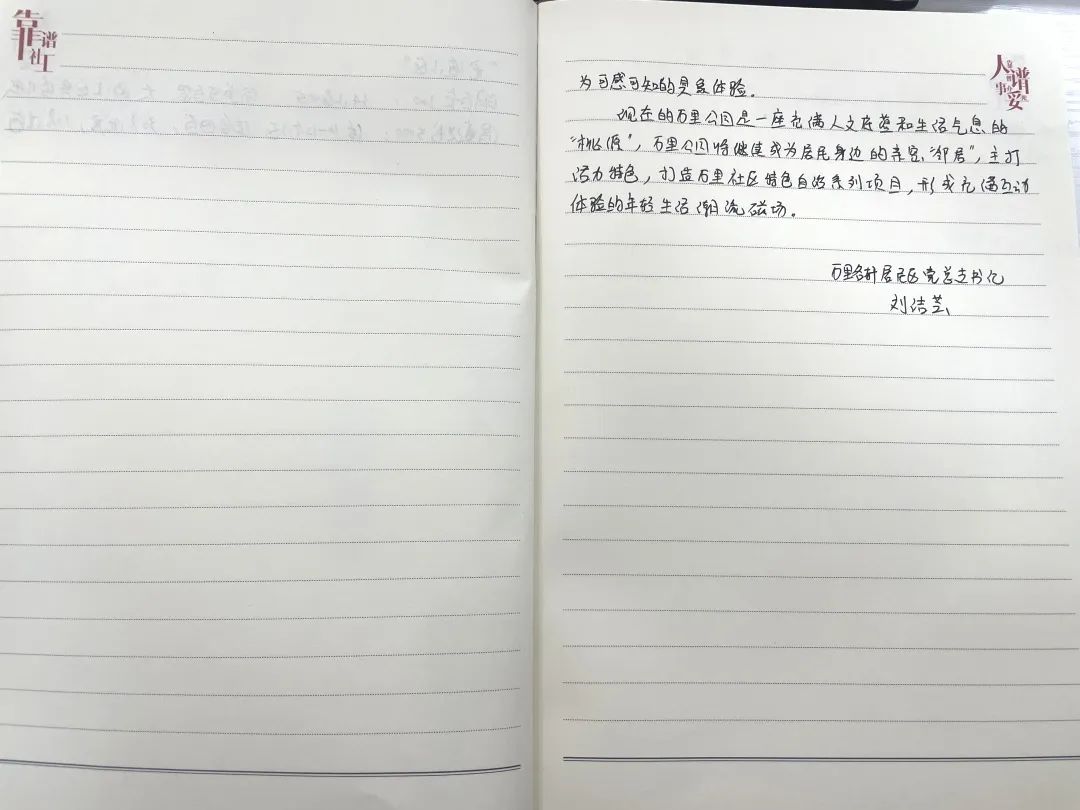 靠谱社工
人靠谱
事办妥
为可感可知的具象体验。
现在的万里公园是一座充满人文底蕴和生活气息的
“桃源”，万里公园将继续成为居民身边的亲密“邻居”，主打
活力特色，打造万里社区特色自治系列项目，形成充满互动
体验的年轻生活潮流磁场。
万里名轩居民区党总支书记
刘洁芸